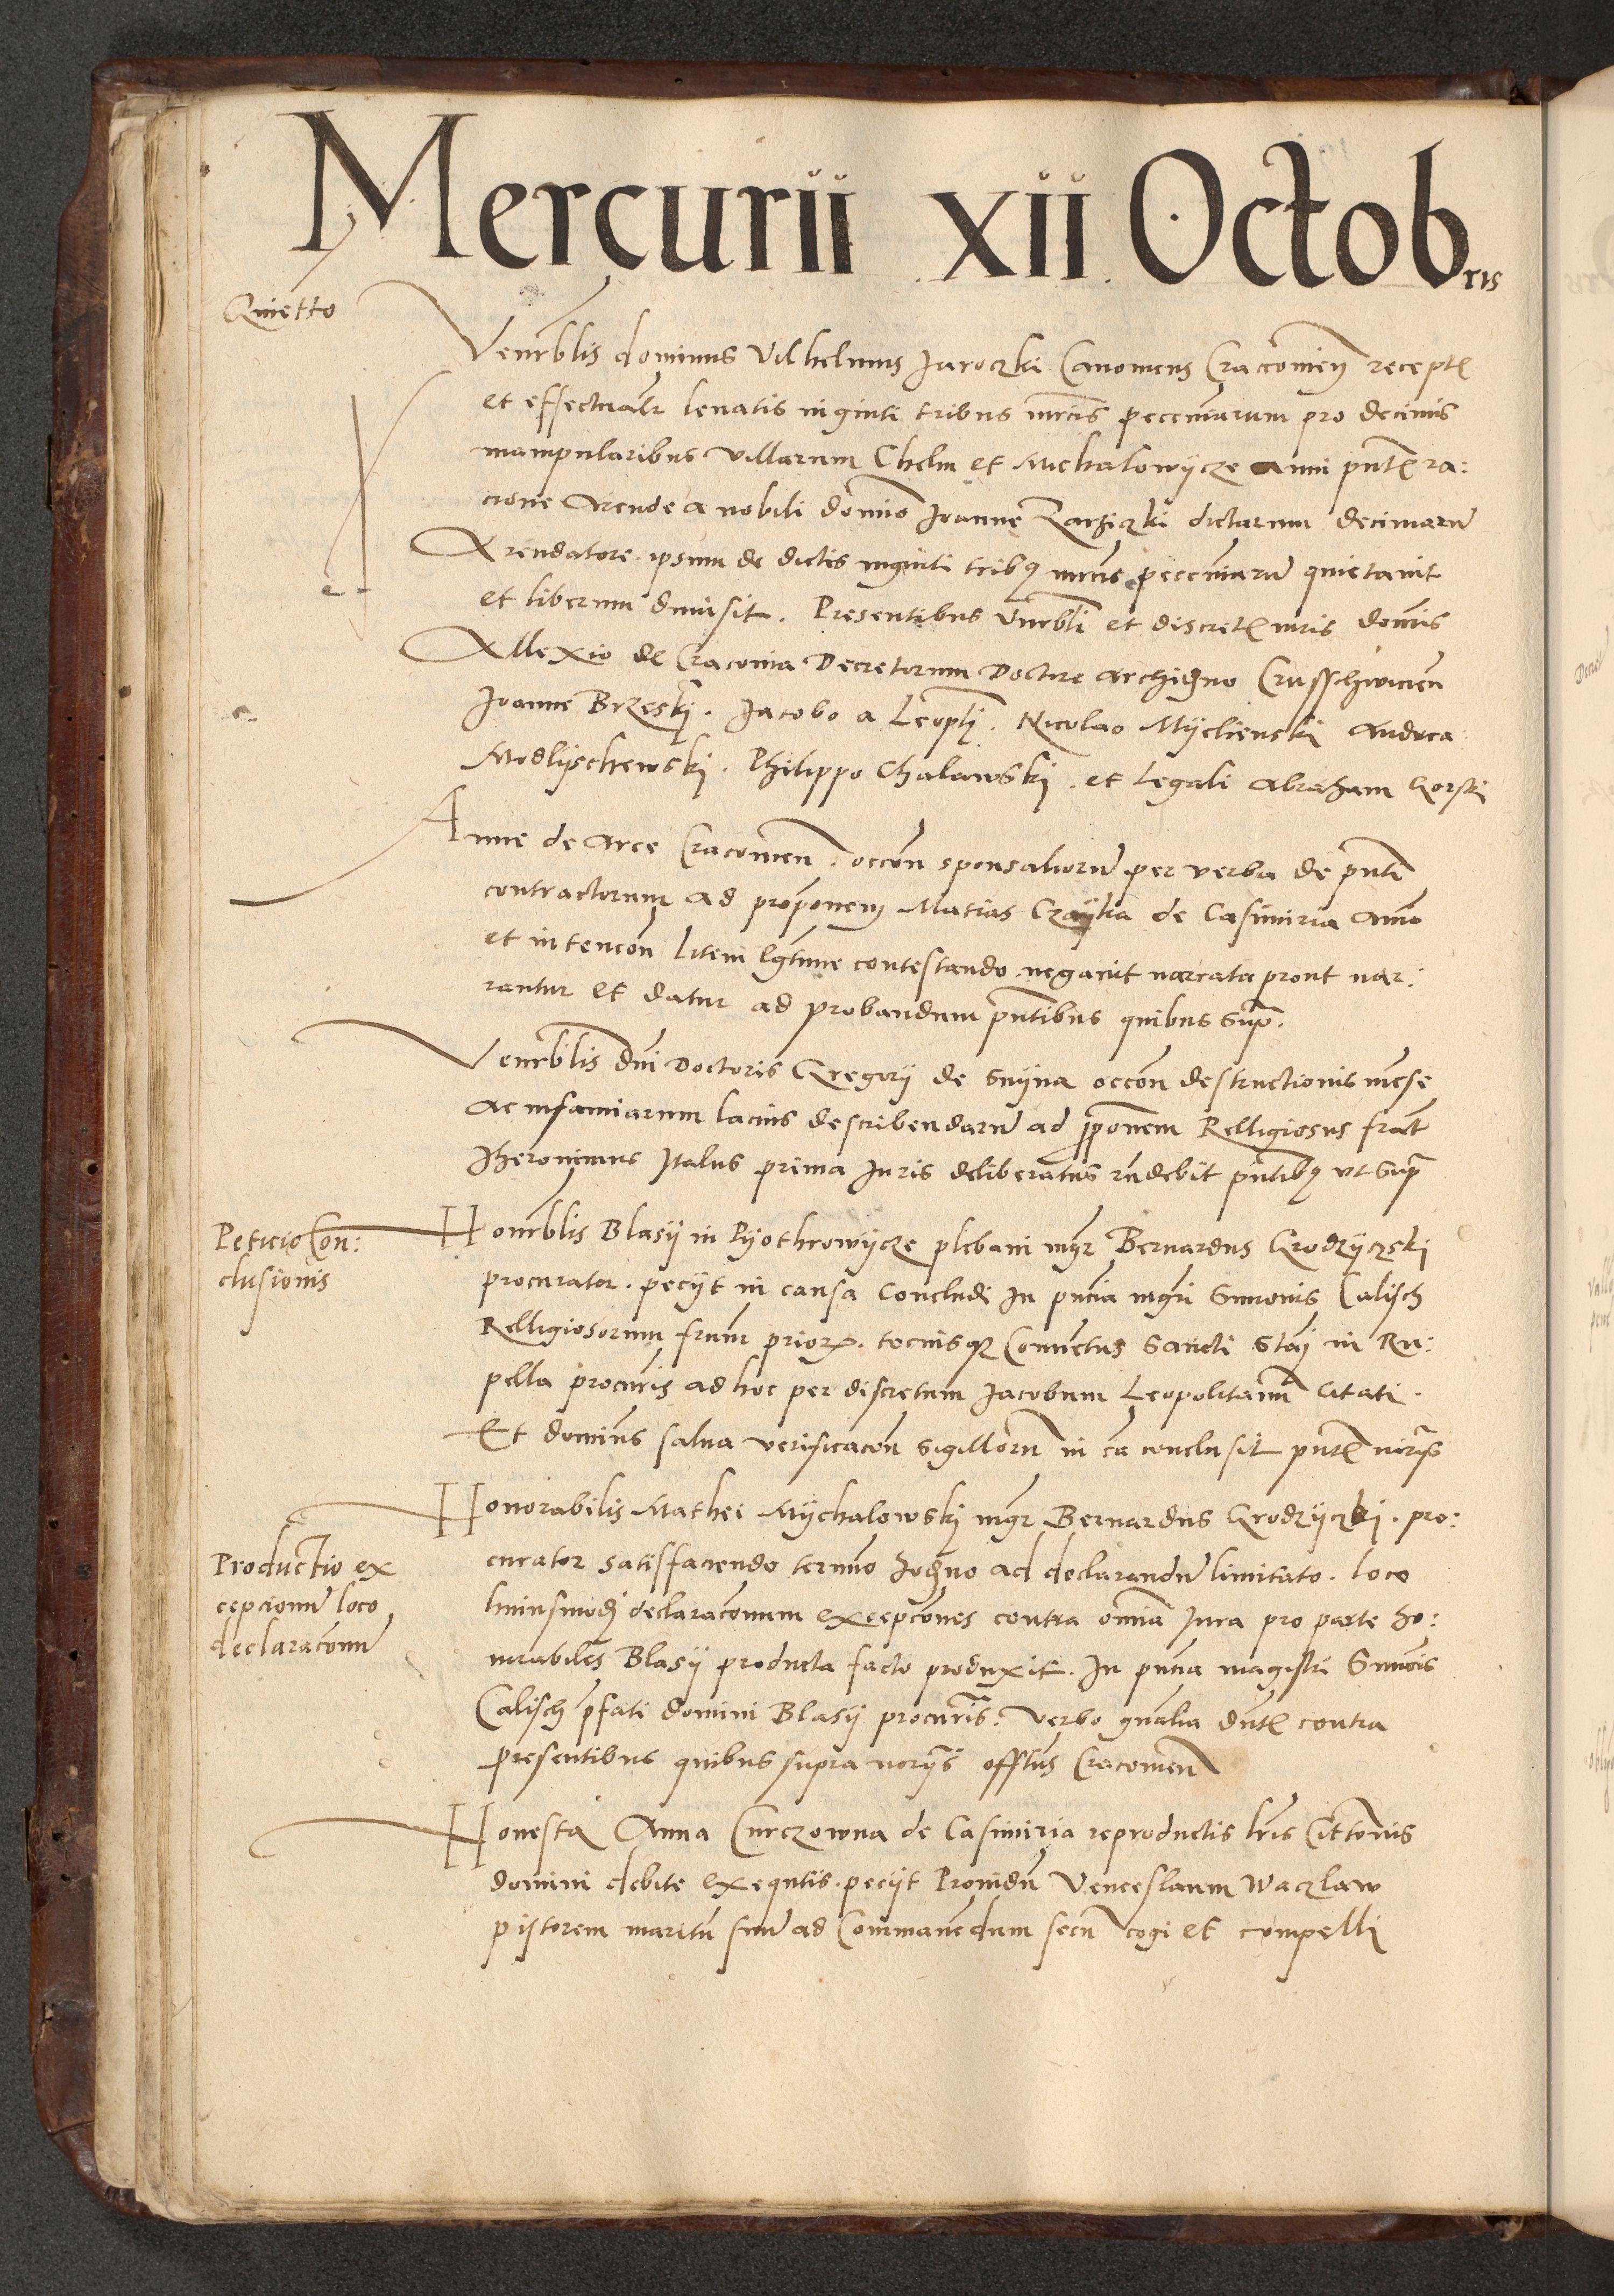 Mercurii xii Octobris
Quietto
Venrblis dominus Vilhelmus Jaroczki Canonicus Cracovien recept
et effectualr levatis viginti tribus mrcis pecuniarum pro decimis
manipularibus villarum Chelm et Michalowycze anni pnt ra:
cione Arende a nobili domino Joanne Zarziczki dictarum decimaru
Arendatore. ipsum de dictis viginti tribus mrcis pecuniaru quietavit
et liberum dimisit. Presentibus Vnrbli et discret viris domnis
Allexio de Cracovia Decretorum Doctore Archidno Crusschwicien
Joanne Brzeski. Jacobo a Leopli. Nicolao Myclienski Andrea
Modlyschewskj. Philippo Chalawskj. et Legali Abraham Gorski
Anne de Arce Cracovien. occon sponsalioru per verba de pnti
contractorum ad proponem Matias Czayka de Casimiria animo
et intencon litem lgtime contestando negavit narrata prout nar:
rantur et datur ad probandum pntibus quibus supra.
Venrblis dni Doctoris Gregorij de occon destructionis mense
ac infamiarum lacius describendaru ad proponem Relligiosus frat
Jheronimus Italus prima Juris deliberatus rndebit pntibus ut supra
Peticio Con:
clusionis
Honrblis Blasij in Pyothrowycze plebani mgr Bernardus Grodzyczski
procurator. pecijt in causa Concludi In pncia mgri Simonis Calisch
Relligiosorum frum prioris. tociusque Conventus Sancti Stai in Ru:
pella procuris ad hoc per discretum Jacobum Leopolitanum citati.
Et dominus salva verificacon sigilloru in ca conclusit pnt
Productio ex
cepcionu loco
declaraconu
Honorabilis Mathei Mychalowskj mgr Bernardus Grodzyczkj. pro:
curator satisfaciendo termino hodierno ad declarandu limitato. loco
huiusmodj declaraconum excepcones contra omnia Jura pro parte ho:
norabilis Blasij producta facto produxit. In pncia magistri Simonis
Calisch pfati domini Blasij procuris. Verbo gnalia dnt contra
presentibus quibus supra notrijs offltus Cracovien
Honesta Anna Curczowna de Casimiria reproductis lris Citonis
domini debite exequtis. pecijt Providu Venceslaum Waczlaw
pistorem maritu suu ad Commanendum secu cogi et compelli